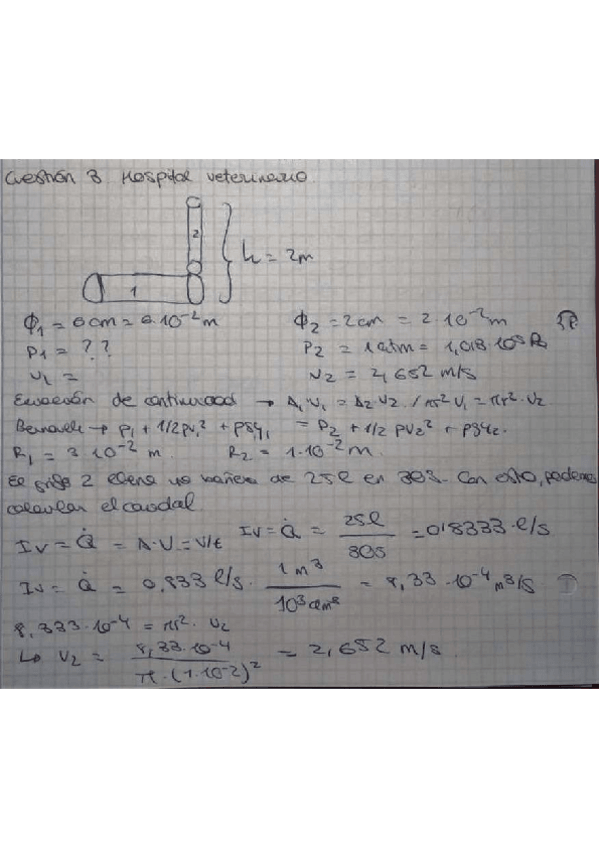 Cuestión 3 Hospital veterinario.
2
h = 2m
1
Φ1 = 6cm = 6·10⁻² m
Φ2 = 2cm = 2 10⁻² m
P1 = ??
P2 = 1atm = 1,013·10⁵ Pa
v1 =
v2 = 2,652 m/s
Ecuación de continuidad → A1·v1 = A2·v2 / πr² v1 = πr²·v2
Bernoulli → P1 + 1/2ρv1² + ρgy1 = P2 + 1/2 ρv2² + ρgy2
R1 = 3 10⁻² m. R2 = 1·10⁻² m.
El grifo 2 llena una bañera de 25l en 30s. Con esto, podemos
calcular el caudal
Iv = Q̇ = A·v = V/t Iv = Q̇ = 25l / 30s = 0,8333 l/s
Iv = Q̇ = 0,833 l/s · 1 m³ / 10³ dm³ = 8,33·10⁻⁴ m³/s
8,333·10⁻⁴ = πr²·v2
↳ v2 = 8,33·10⁻⁴ / π·(1·10⁻²)² = 2,652 m/s